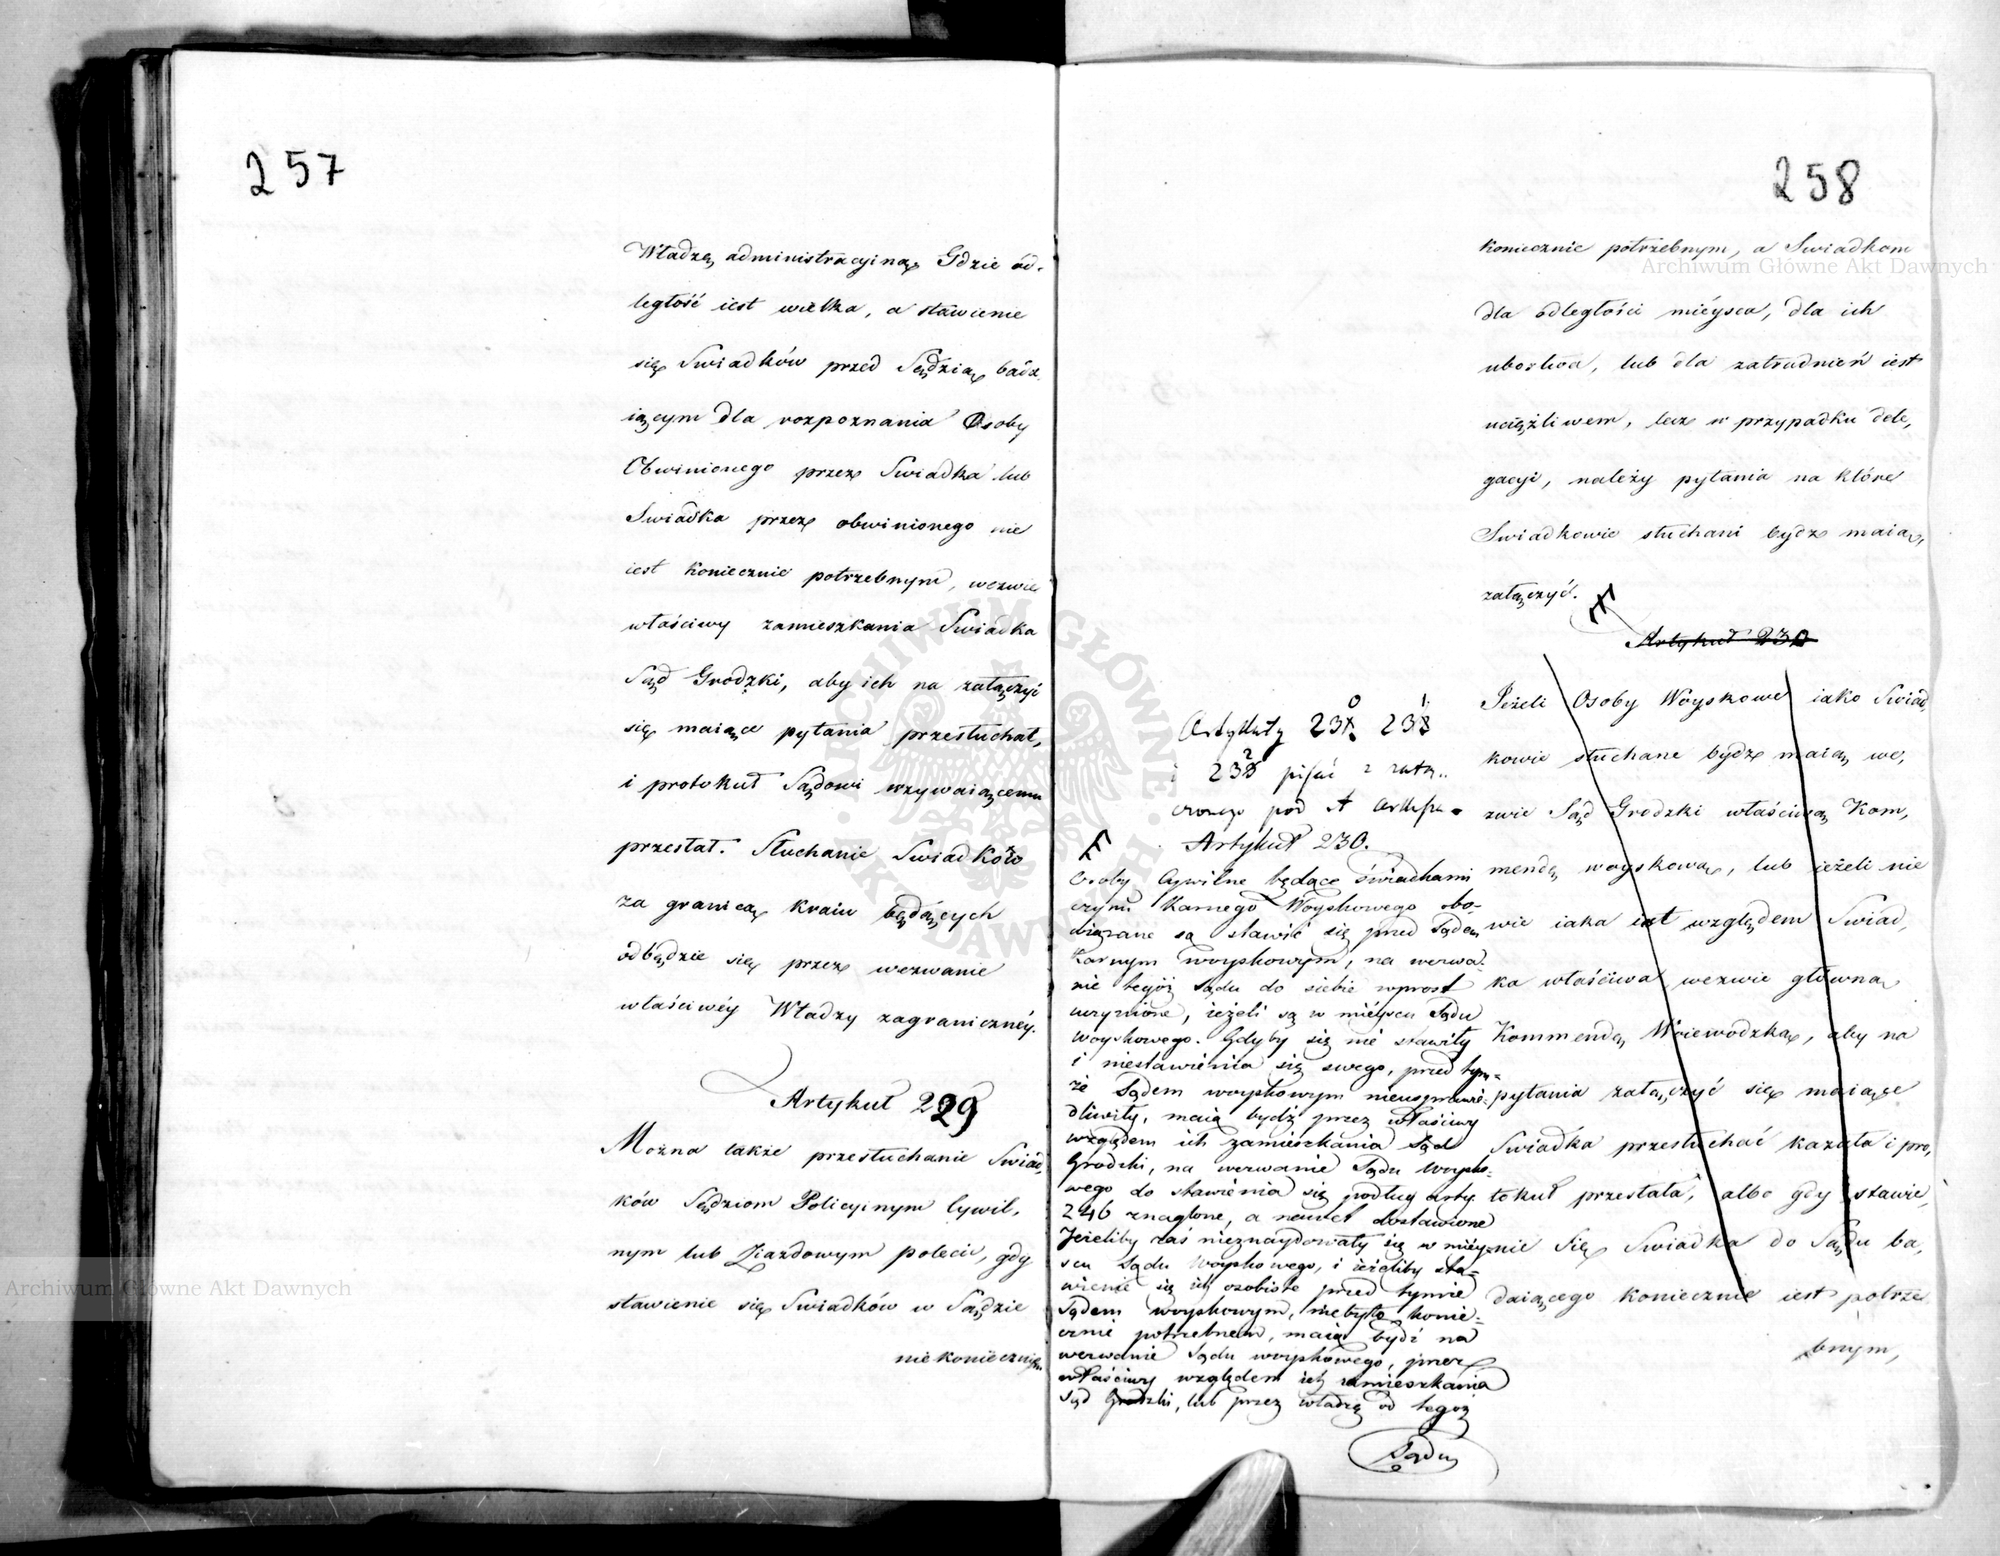 257
Władzę administracyiną. Gdzie od-
ległość iest wielka, a stawienie
się Swiadków przed Sędzią badź
iącym dla rozpoznania Osoby
Obwinionego przez Swiadka lub
Swiadka przez obwinionego nie
iest koniecznie potrzebnym, wezwie
właściwy zamieszkania Swiadka
Sąd Grodzki, aby ich na załączyć
się maiące pytania przesłuchał,
i protokuł Sądowi wzywaiącemu
przesłał. Słuchanie Swiadków
za granicą kraiu będących
odbędzie się przez wezwanie
właściwéy Władzy zagranicznéy.
Artykuł 229
Można także przesłuchanie Swiad,
ków Sędziom Policyinym Cywil,
nym lub Ziazdowym polecić, gdy
stawienie się Swiadków w Sądzie
nie koniecznie
258
koniecznie potrzebnym, a Swiadkom
dla odległości miéysca, dla ich
ubostwa, lub dla zatrudnień iest
uciążliwem, lecz w przypadku dele,
gacyi, należy pytania na które
Swiadkowie słuchani bydź maią,
załączyć.
Artykuł 230
Jeżeli Osoby Woyskowe iako Swiad,
kowie słuchane bydź maią we,
zwie Sąd Grodzki właściwą Kom,
mendę woyskową, lub ieżeli nie
wie iaka iest względem Swiad,
ka właściwa, wezwie główną
Kommendę Woiewodzką, aby na
pytania załączyć się maiące
Swiadka przesłuchać kazała i pro,
tokuł przesłała, albo gdy stawie,
nie Się Swiadka do Sądu ba,
daiącego koniecznie iest potrze
bnym,
Artykuły 230 231
i 232 pisać z załą..
czonego pod A
Artykuł 230.
Osoby Cywilne będące świadkami
czynu Karnego Woyskowego obo-
wiązane są stawić się przed Sądem
Karnym woyskowym, na wezwa-
nie tegóż Sądu do siebie wprost
uczynione, ieżeli są w miéyscu Sądu
woyskowego. Gdyby się nie stawiły
i niestawienia się swego, przed tym-
że Sądem woyskowym nieusprawie-
dliwiły, maią bydź przez właściwy
względem ich zamieszkania Sąd
Grodzki, na wezwanie Sądu Woysko-
wego do stawienia się podług arty.
246 znaglone, a nawet dostawione
Jeżeliby zaś nieznaydowały się w miéy-
scu Sądu Woyskowego, i ieżeliby sta-
wienie się ich osobiste przed tymże
Sądem woyskowym, niebyło konie-
cznie potrzebnem, maią bydź na
wezwanie Sądu woyskowego, przez
właściwy względem ich zamieszkania
Sąd Grodzki, lub przez władzę od tegoż
Sądu
Archiwum Główne Akt Dawnych
Archiwum Główne Akt Dawnych
ARCHIWUM GŁÓWNE AKT DAWNYCH